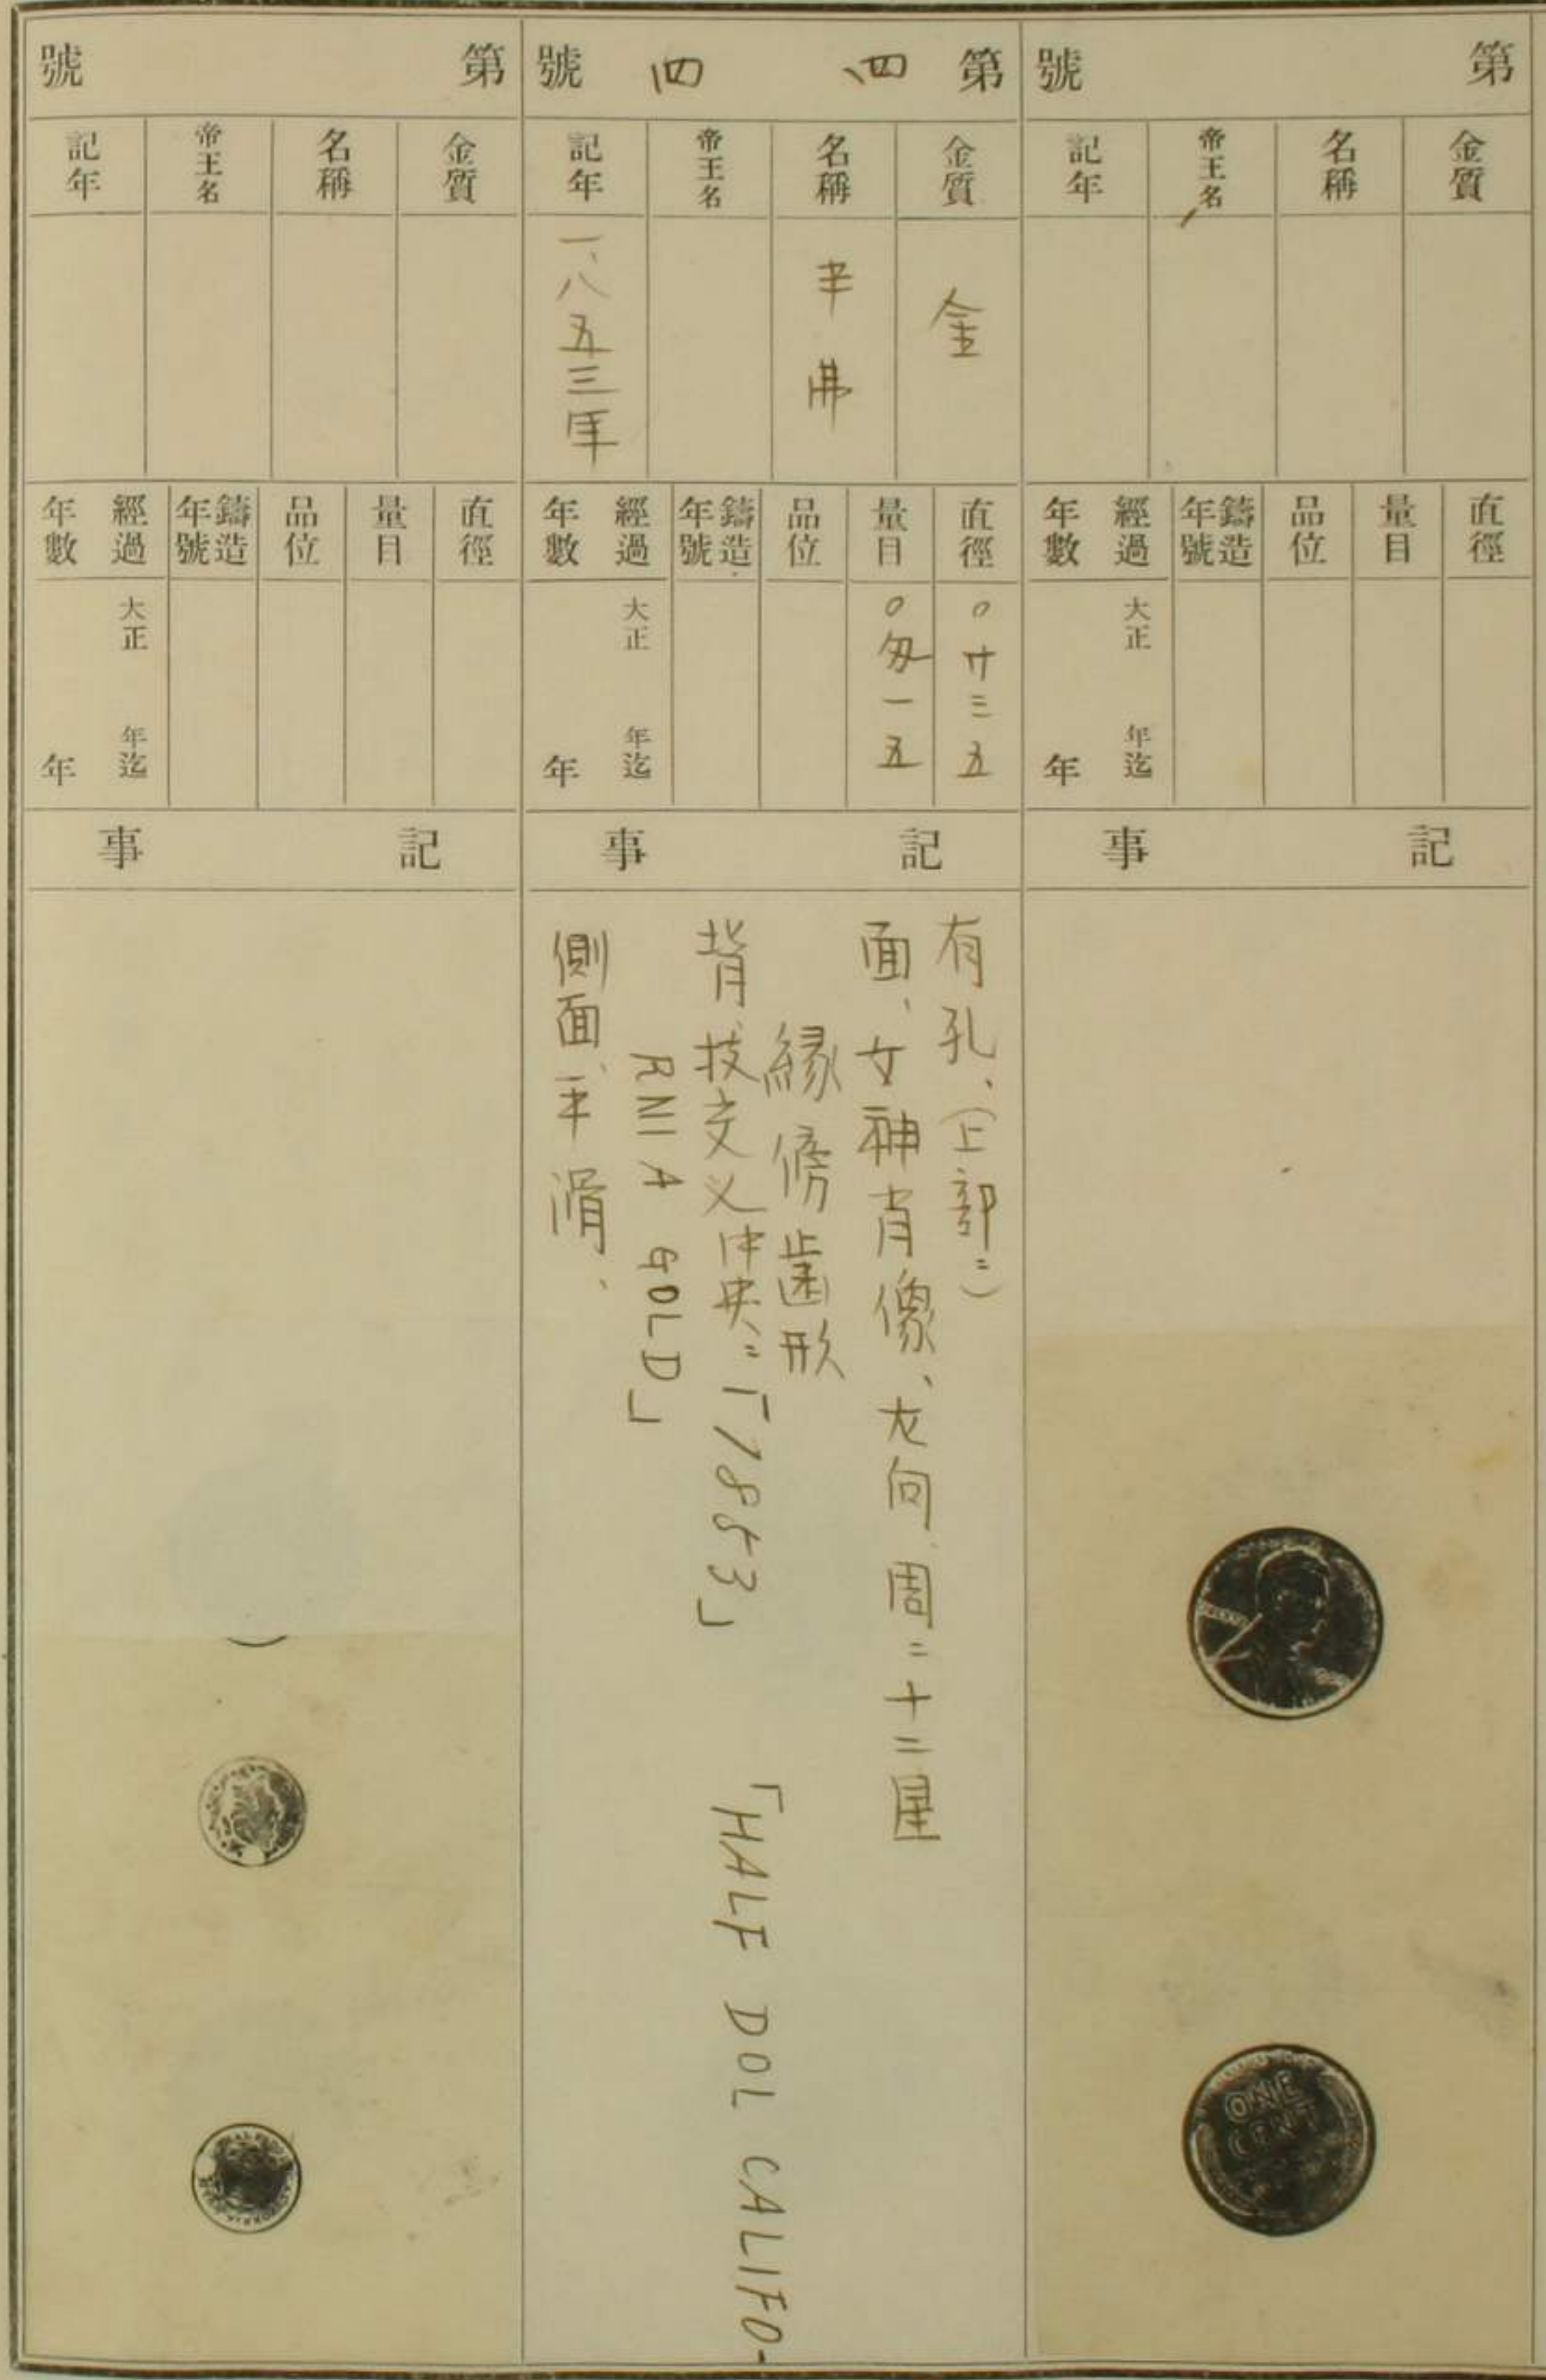 第 號
金質
名稱
帝王名
記年
直徑
量目
品位
鑄造年號
經過年數
大正 年迄
年
記事
ONE
CENT
第 四、四 號
金質
名稱
帝王名
記年
金
半弗
一、八五三年
直徑
量目
品位
鑄造年號
經過年數
〇寸三五
〇匁一五
大正 年迄
年
記事
有孔、(上部ニ)
面、女神肖像、左向、周ニ十二星
縁傍歯形
背、枝交义 中央ニ「1853」 「HALF DOL CALIFO-
RNIA GOLD」
側面、平滑、
第 號
金質
名稱
帝王名
記年
直徑
量目
品位
鑄造年號
經過年數
大正 年迄
年
記事